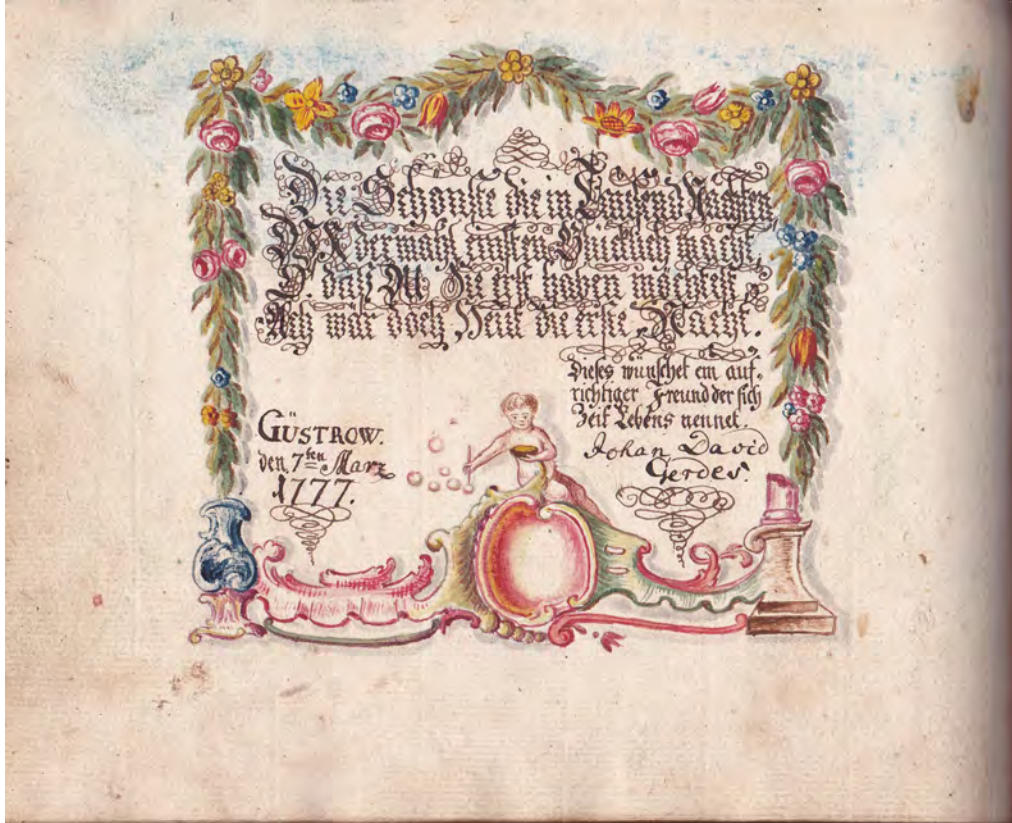 Die Schönste die in Tausend Nächten
Dich dermahl einsten Glücklich macht,
O daß Du erst haben möchtest
Ach wär doch Heut die erste Nacht.
Dieses wünschet ein auf-
richtiger Freund der sich
Zeit Lebens nennet.
Johan David
Gerdes.
GÜSTROW.
den 7ten Marz
1777.